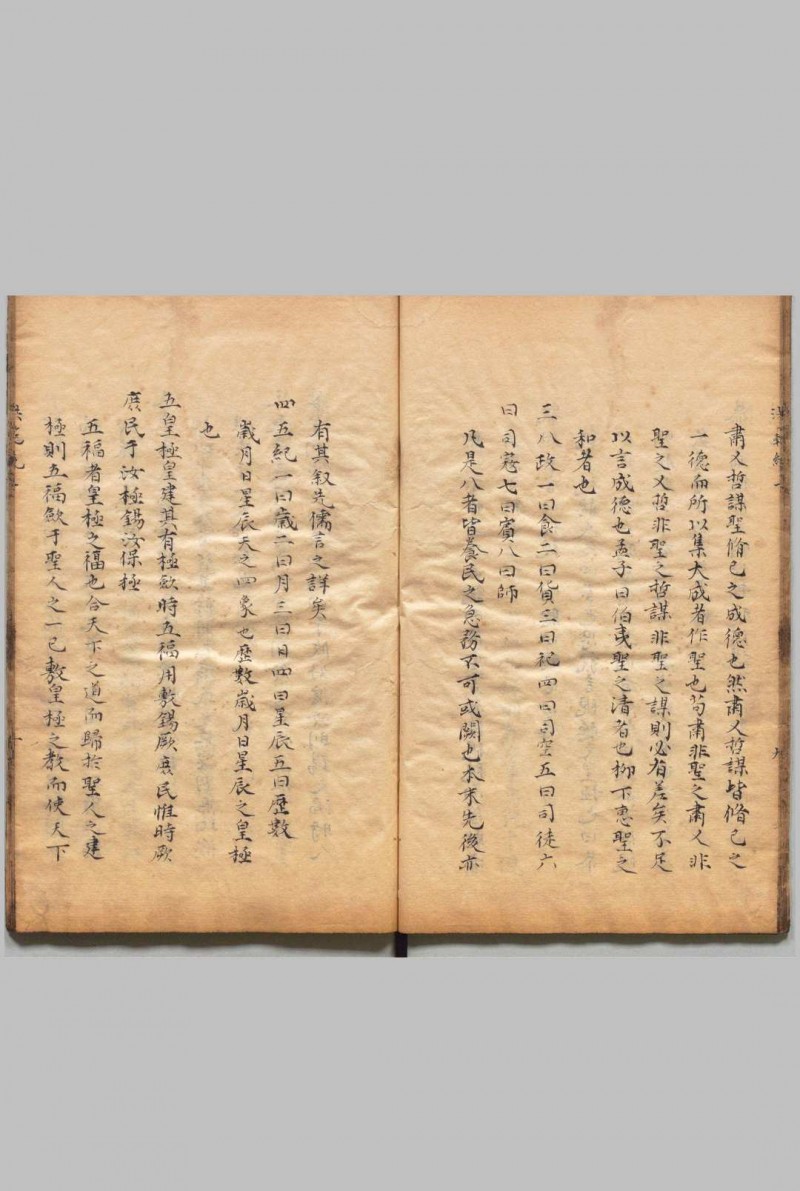 肅乂哲謀聖脩己之成德也然肅乂哲謀皆脩己之
一德而所以集大成者作聖也苟肅非聖之肅乂非
聖之乂哲非聖之哲謀非聖之謀則必有差矣不足
以言成德也孟子曰伯夷聖之清者也柳下惠聖之
和者也
三八政一曰食二曰貨三曰祀四曰司空五曰司徒六
曰司寇七曰賓八曰師
凡是八者皆養民之急務不可或闕也本末先後亦
有其叙先儒言之詳矣
四五紀一曰歲二曰月三曰日四曰星辰五曰歷數
歲月日星辰天之四象也歷數歲月日星辰之皇極
也
五皇極皇建其有極歛時五福用敷錫厥庶民惟時厥
庶民于汝極錫汝保極
五福者皇極之福也合天下之道而歸於聖人之建
極則五福歛于聖人之一己敷皇極之教而使天下